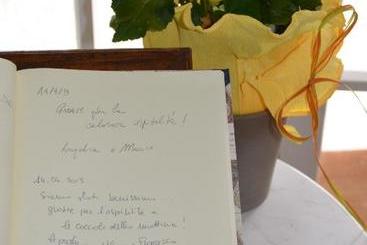 Grazie per la
calorosa ospitalità!
e Marco
14.04.2013
Siamo stati benissimo...
grazie per l'ospitalità e
le coccole della mattina!
A presto